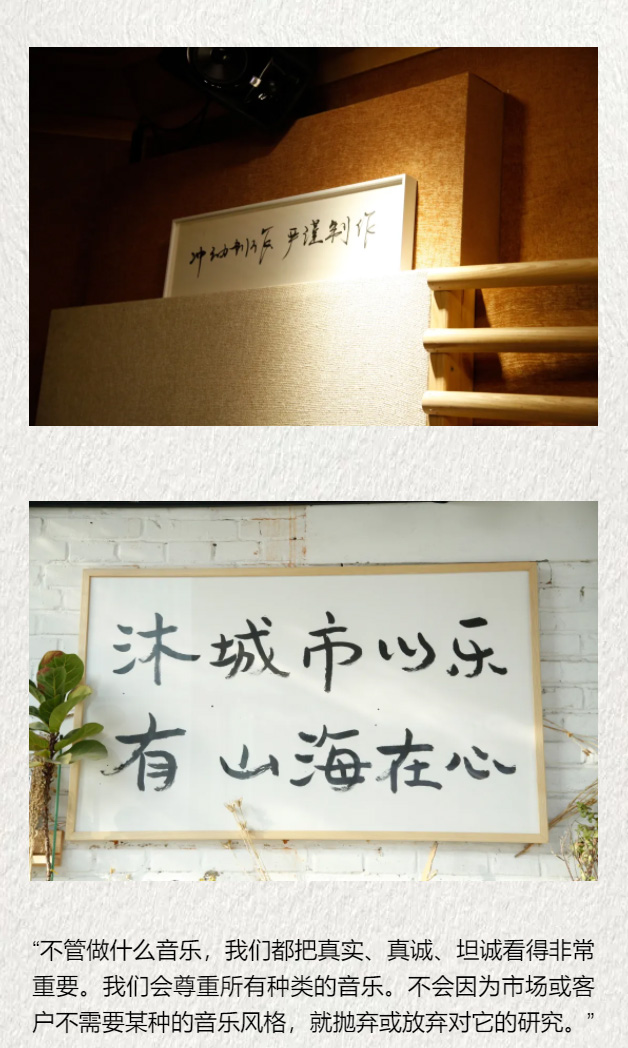 冲动创作 严谨制作
沐城市以乐
有山海在心
“不管做什么音乐，我们都把真实、真诚、坦诚看得非常
重要。我们会尊重所有种类的音乐。不会因为市场或客
户不需要某种的音乐风格，就抛弃或放弃对它的研究。”